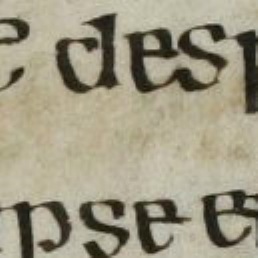 e desp
pse es